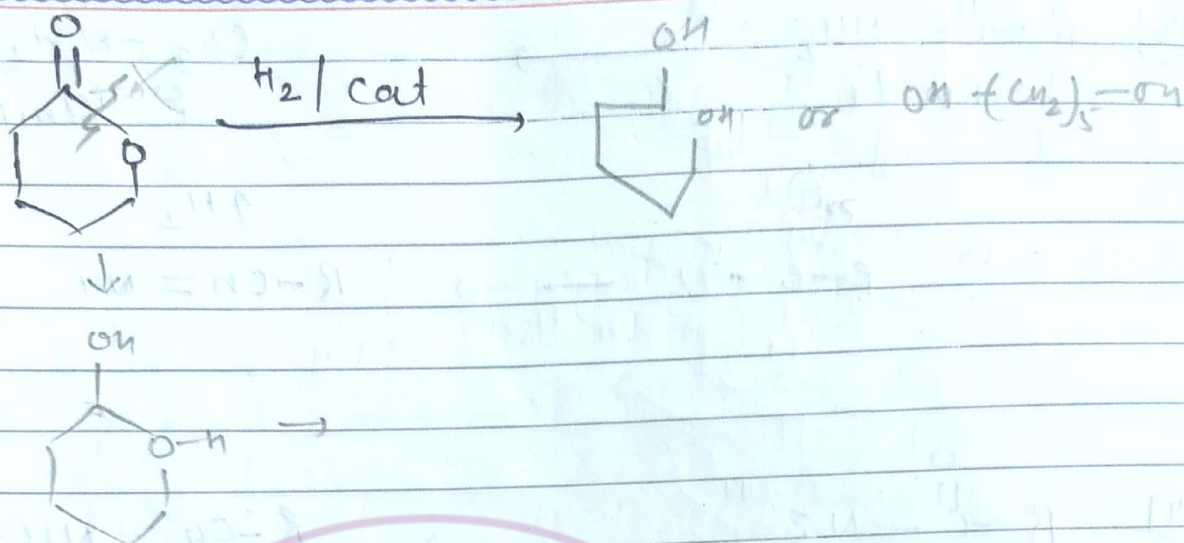 O
H2 / Cat
OH
O
OH or OH -(CH2)5-OH
↓
OH
O-H →